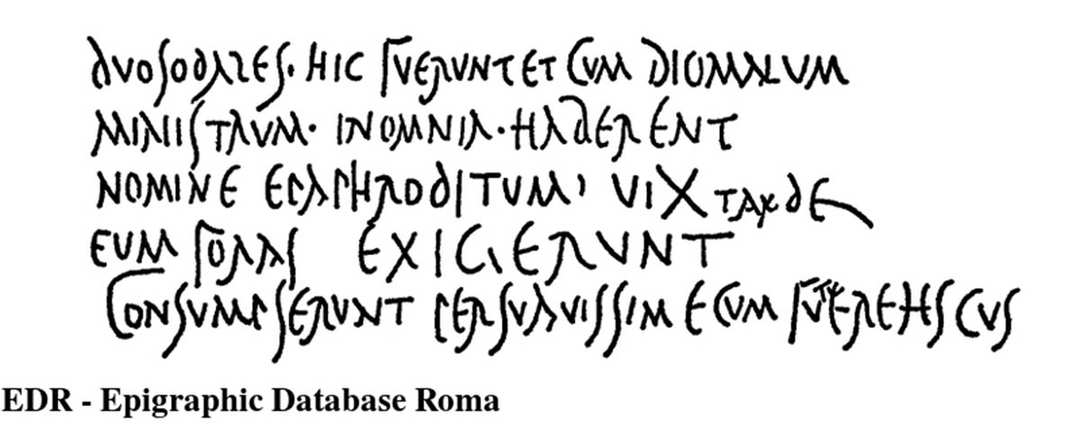 DVO SODALES· HIC FVERVNT ET CVM DIO MALVM
MINISTRVM· IN OMNIA· HABERENT
NOMINE EPAPHRODITVM VIX TARDE
EVM FORAS EXIGERVNT
CONSVMPSERVNT PERSVAVISSIME CVM FVTERE HS CVS
EDR - Epigraphic Database Roma